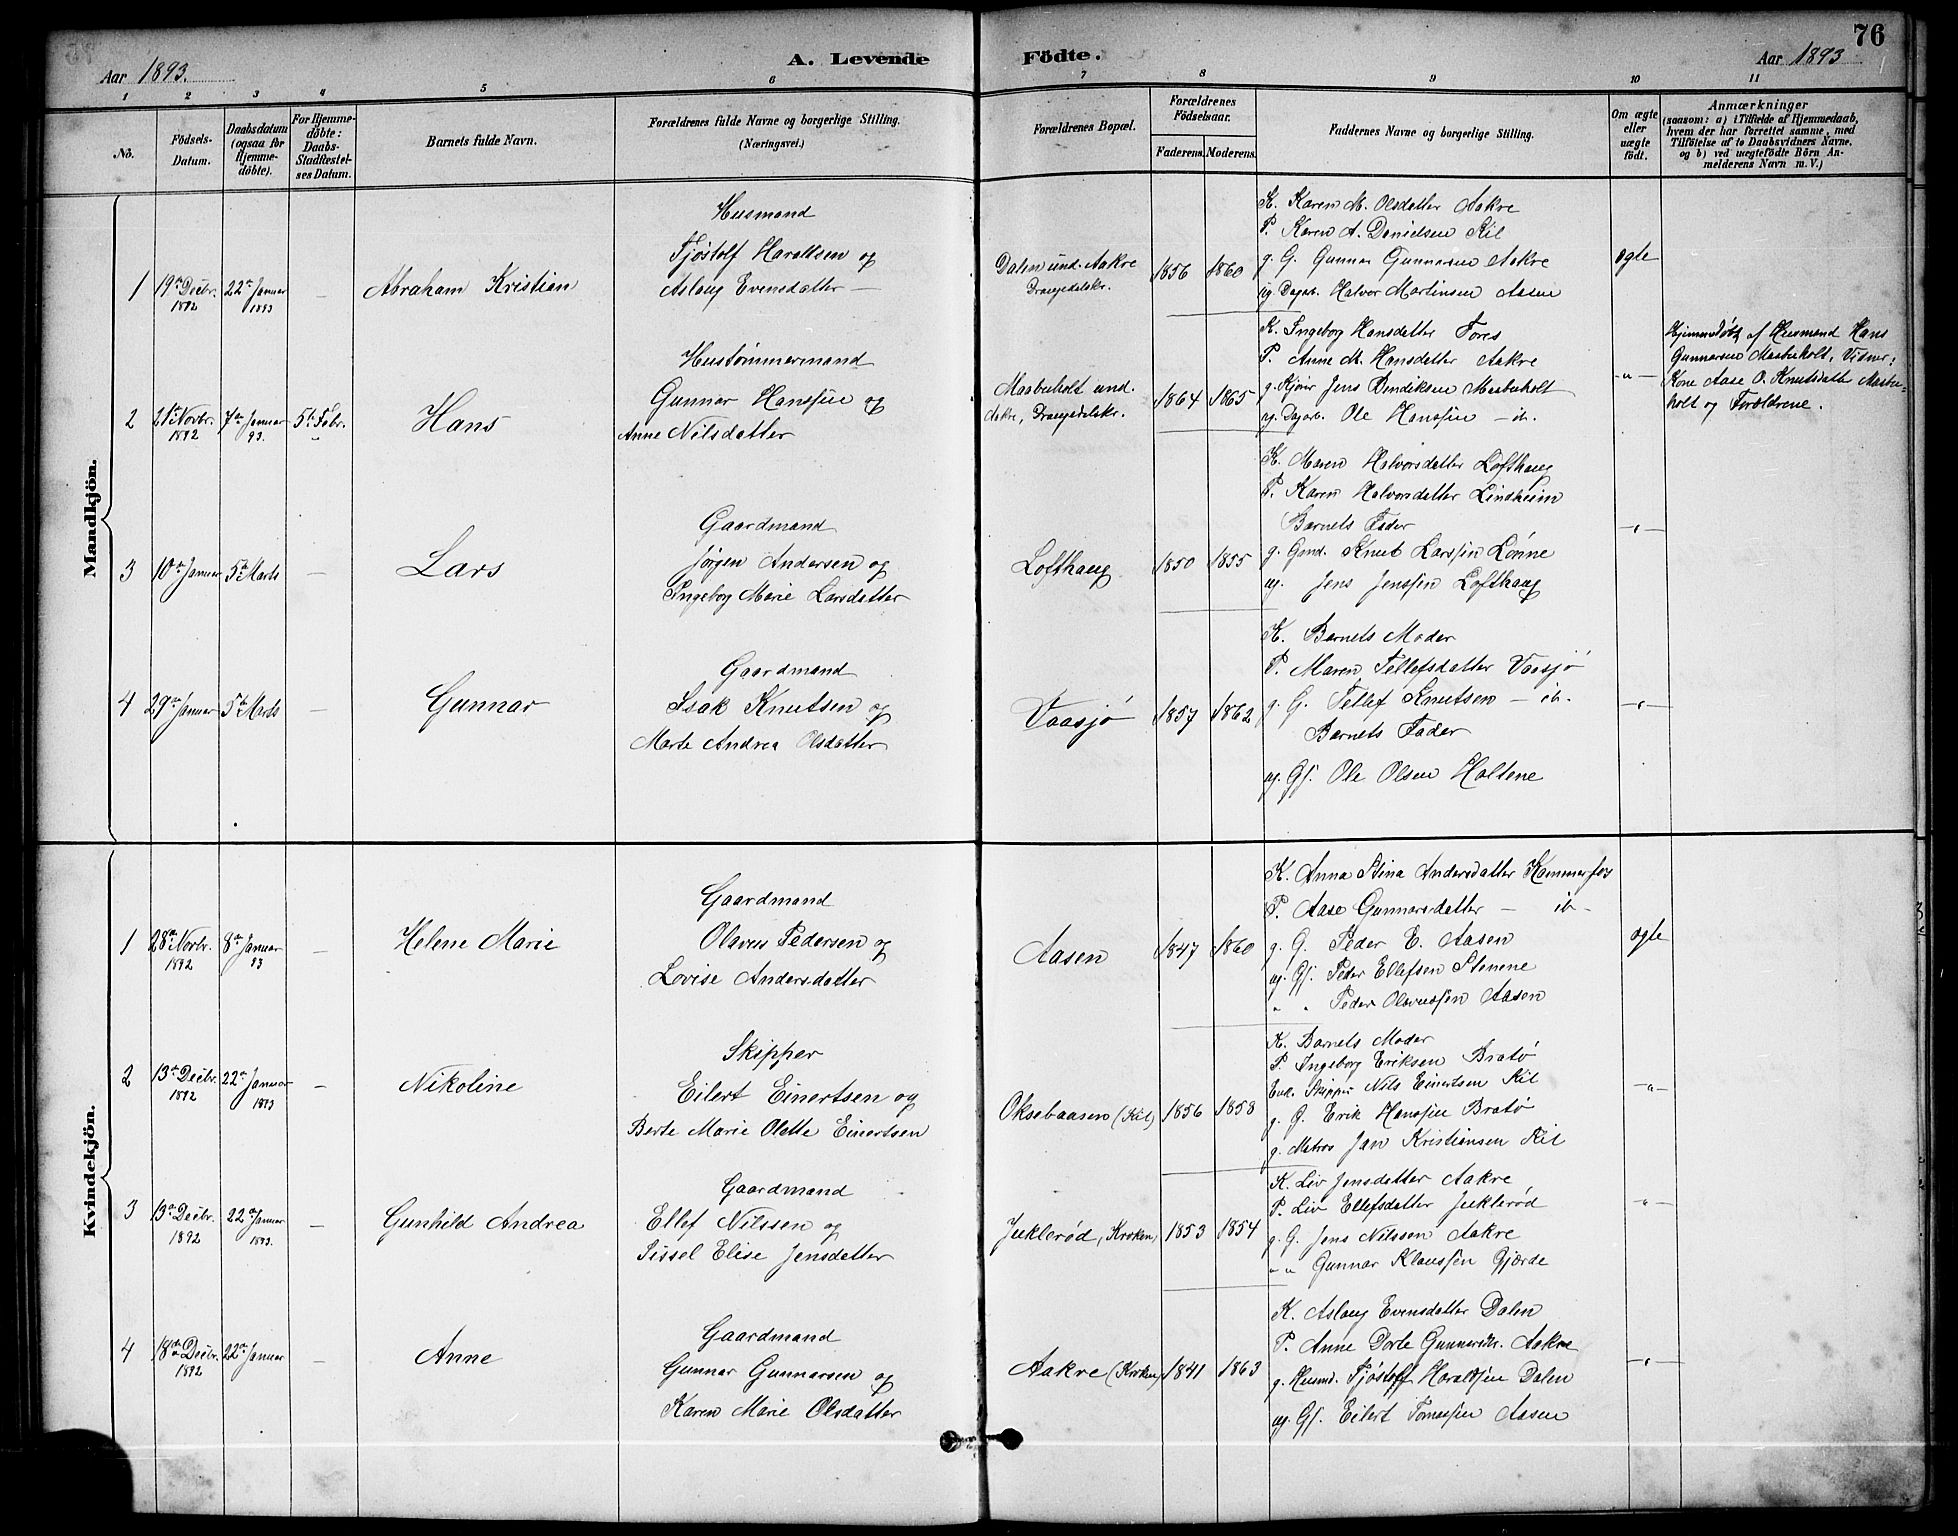 76
Aar 1893.
A. Levende Födte.
Aar 1893
1 2 3 4 5 6 7 8 9 10 11
No.
Födsels-Datum.
Daabsdatum (ogsaa for Hjemme-döbte).
For Hjemme-döbte: Daabs-Stadfæstel-ses Datum.
Barnets fulde Navn.
Forældrenes fulde Navne og borgerlige Stilling. (Næringsvei.)
Forældrenes Bopæl.
Forældrenes Födselsaar.
Faderens.
Moderens.
Faddernes Navne og borgerlige Stilling.
Om ægte eller uægte födt.
Anmærkninger
(saasom: a) i Tilfælde af Hjemmedaab,
hvem der har forrettet samme, med
Tilföielse af to Daabsvidners Navne,
og b) ved uægtefödte Börn An-
melderens Navn m. V.)
Mandkjön.
1
19de Decbr. 1892
22de Januar 1893
—
Abraham Kristian
Husmand
Tjøstolf Haraldsen og
Aslaug Evensdatter —
Dalen und. Aakre
Drangedalskr.
1856
1860
K. Karen M. Olsdatter Aakre
P. Karen A. Danielsen Kil
g. G. Gunnar Gunnarsen Aakre
ug. Dagarb. Halvor Martinsen Aasen
ægte
2
21de Novbr. 1892
7de Januar 93.
5te Febr. "
Hans
Hustømmermand
Gunnar Hanssen og
Anne Nilsdatter
Maabuholt und.
Aakre, Drangedalskr.
1864
1865
K. Ingeborg Hansdatter Fores
P. Anne M. Hansdatter Aakre
g. Kjører Jens Bendiksen Maabuholt
ug. Dagarb. Ole Hanssen — ib.
-"-
Hjemmedøbt af Husmand Hans
Gunnarsen Maabuholt, Vidner:
Kone Aase O. Knutsdatter Maabu-
holt og Forældrene.
3
10de Januar
5te Marts
—
Lars
Gaardmand
Jørgen Andersen og
Ingeborg Marie Larsdatter
Lofthaug
1850
1855
K. Maren Halvorsdatter Lofthaug
P. Karen Halvorsdatter Lindheim
Barnets Fader
g. Gmd. Knut Larssen Lønne
ug. Jens Jenssen Lofthaug
-"-
4
29de Januar
5te Marts
—
Gunnar
Gaardmand
Isak Knutsen og
Marte Andrea Olsdatter
Vaasjø
1857
1862
K. Barnets Moder
P. Maren Tellefsdatter Vaasjø
g. G. Tellef Knutsen — ib.
Barnets Fader
ug. Gf. Ole Olsen Holtene
-"-
Kvindekjön.
1
28de Novbr. 1892
8de Januar 93
—
Helene Marie
Gaardmand
Olaves Pedersen og
Lovise Andersdatter
Aasen
1847
1860
K. Anna Stina Andersdatter Kammerfos
P. Aase Gunnarsdatter — ib —
g. G. Peder E. Aasen
ug. Gf. Peder Ellefsen Stenene
" " Peder Olavessen Aasen
ægte
2
13de Decbr. 1892
22de Januar 1893
—
Nikoline
Skipper
Eilert Einertsen og
Berte Marie Olette Einertsen
Oksebaasen (Kil)
1856
1858
K. Barnets Moder
P. Ingeborg Eriksen Bratø
Enk. Skipper Nils Einertsen Kil
g. G. Erik Hanssen Bratø
g. Matros Jan Kristiansen Kil
-"-
3
13de Decbr. 1892
22de Januar 1893.
—
Gunhild Andrea
Gaardmand
Ellef Nilssen og
Sissel Elise Jensdatter
Juklerød, Kroken,
1853
1854
K. Liv Jensdatter Aakre
P. Liv Ellefsdatter Juklerød
g. G. Jens Nilssen Aakre
" " Gunnar Klaussen Gjærde
-"-
4
18de Decbr. 1892
22de Januar
—
Anne
Gaardmand
Gunnar Gunnarsen og
Karen Marie Olsdatter
Aakre (Kroken)
1841
1863
K. Aslaug Evensdatter Dalen
P. Anne Dorte Gunnarsdtr. Aakre
g. Husmd. Tjøstolf Haraldsen Dalen
ug. Gf. Eilert Tomassen Aasen
-"-